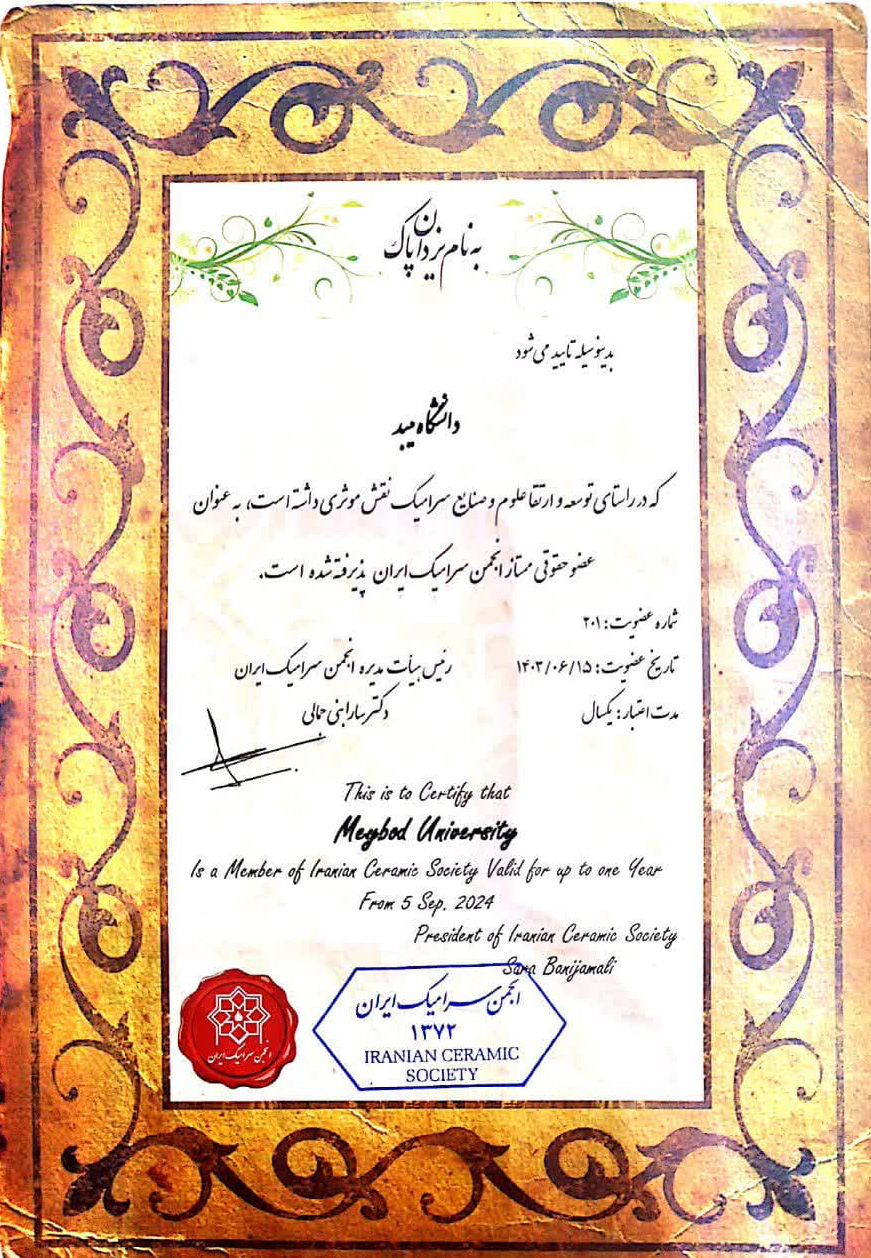 به نام یزدان پاک
بدینوسیله تایید می شود
دانشگاه میبد
که در راستای توسعه و ارتقا علوم و صنایع سرامیک نقش موثری داشته است، به عنوان
عضو حقوقی ممتاز انجمن سرامیک ایران پذیرفته شده است.
شماره عضویت: ۲۰۱
تاریخ عضویت: ۱۴۰۳/۰۶/۱۵
مدت اعتبار: یکسال
رئیس هیأت مدیره انجمن سرامیک ایران
دکتر سارا بنی جمالی
This is to Certify that
Meybod University
Is a Member of Iranian Ceramic Society Valid for up to one Year
From 5 Sep. 2024
President of Iranian Ceramic Society
Sara Banijamali
انجمن سرامیک ایران
انجمن سرامیک ایران
۱۳۷۲
IRANIAN CERAMIC
SOCIETY